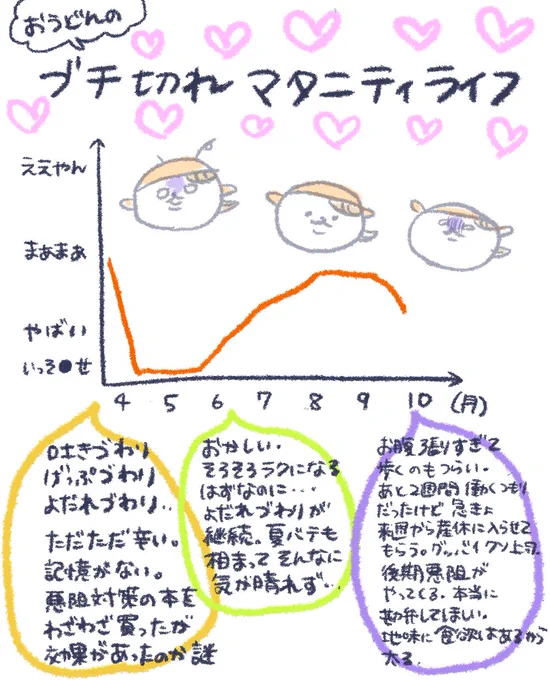 おうどんの
ブチ切れマタニティライフ
ええやん
まあまあ
やばい
いっそ●せ
4 5 6 7 8 9 10 (月)
吐きづわり
げっぷづわり
よだれづわり..
ただただ辛い。
記憶がない。
悪阻対策の本を
わざわざ買ったが
効果があったのか謎
おかしい。
そろそろラクになる
はずなのに…
よだれづわりが
継続。夏バテも
相まってそんなに
気が晴れず…
お腹張りすぎて
歩くのもつらい。
あと2週間働くつもり
だったけど急きょ
来週から産休に入らせて
もらう。グッバイクソ上司。
後期悪阻が
やってくる。本当に
勘弁してほしい。
地味に食欲はあるから
太る.